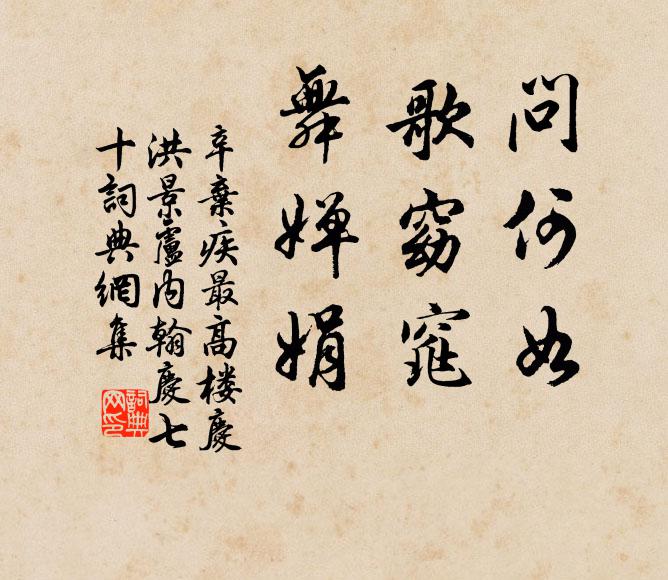 問何如
歌窈窕
舞嬋娟
辛棄疾最高樓慶
洪景廬內翰慶七
十詞典網集
詞典網印